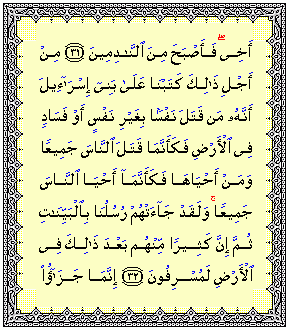 أَخِىۖ فَأَصۡبَحَ مِنَ ٱلنَّـٰدِمِينَ ٣١ مِنۡ
أَجۡلِ ذَٰلِكَ كَتَبۡنَا عَلَىٰ بَنِىٓ إِسۡرَـٰٓءِيلَ
أَنَّهُۥ مَن قَتَلَ نَفۡسَۢا بِغَيۡرِ نَفۡسٍ أَوۡ فَسَادٍ
فِى ٱلۡأَرۡضِ فَكَأَنَّمَا قَتَلَ ٱلنَّاسَ جَمِيعًا
وَمَنۡ أَحۡيَاهَا فَكَأَنَّمَآ أَحۡيَا ٱلنَّاسَ
جَمِيعًاۚ وَلَقَدۡ جَآءَتۡهُمۡ رُسُلُنَا بِٱلۡبَيِّنَـٰتِ
ثُمَّ إِنَّ كَثِيرًا مِّنۡهُم بَعۡدَ ذَٰلِكَ فِى
ٱلۡأَرۡضِ لَمُسۡرِفُونَ ٣٢ إِنَّمَا جَزَـٰٓؤُاْ